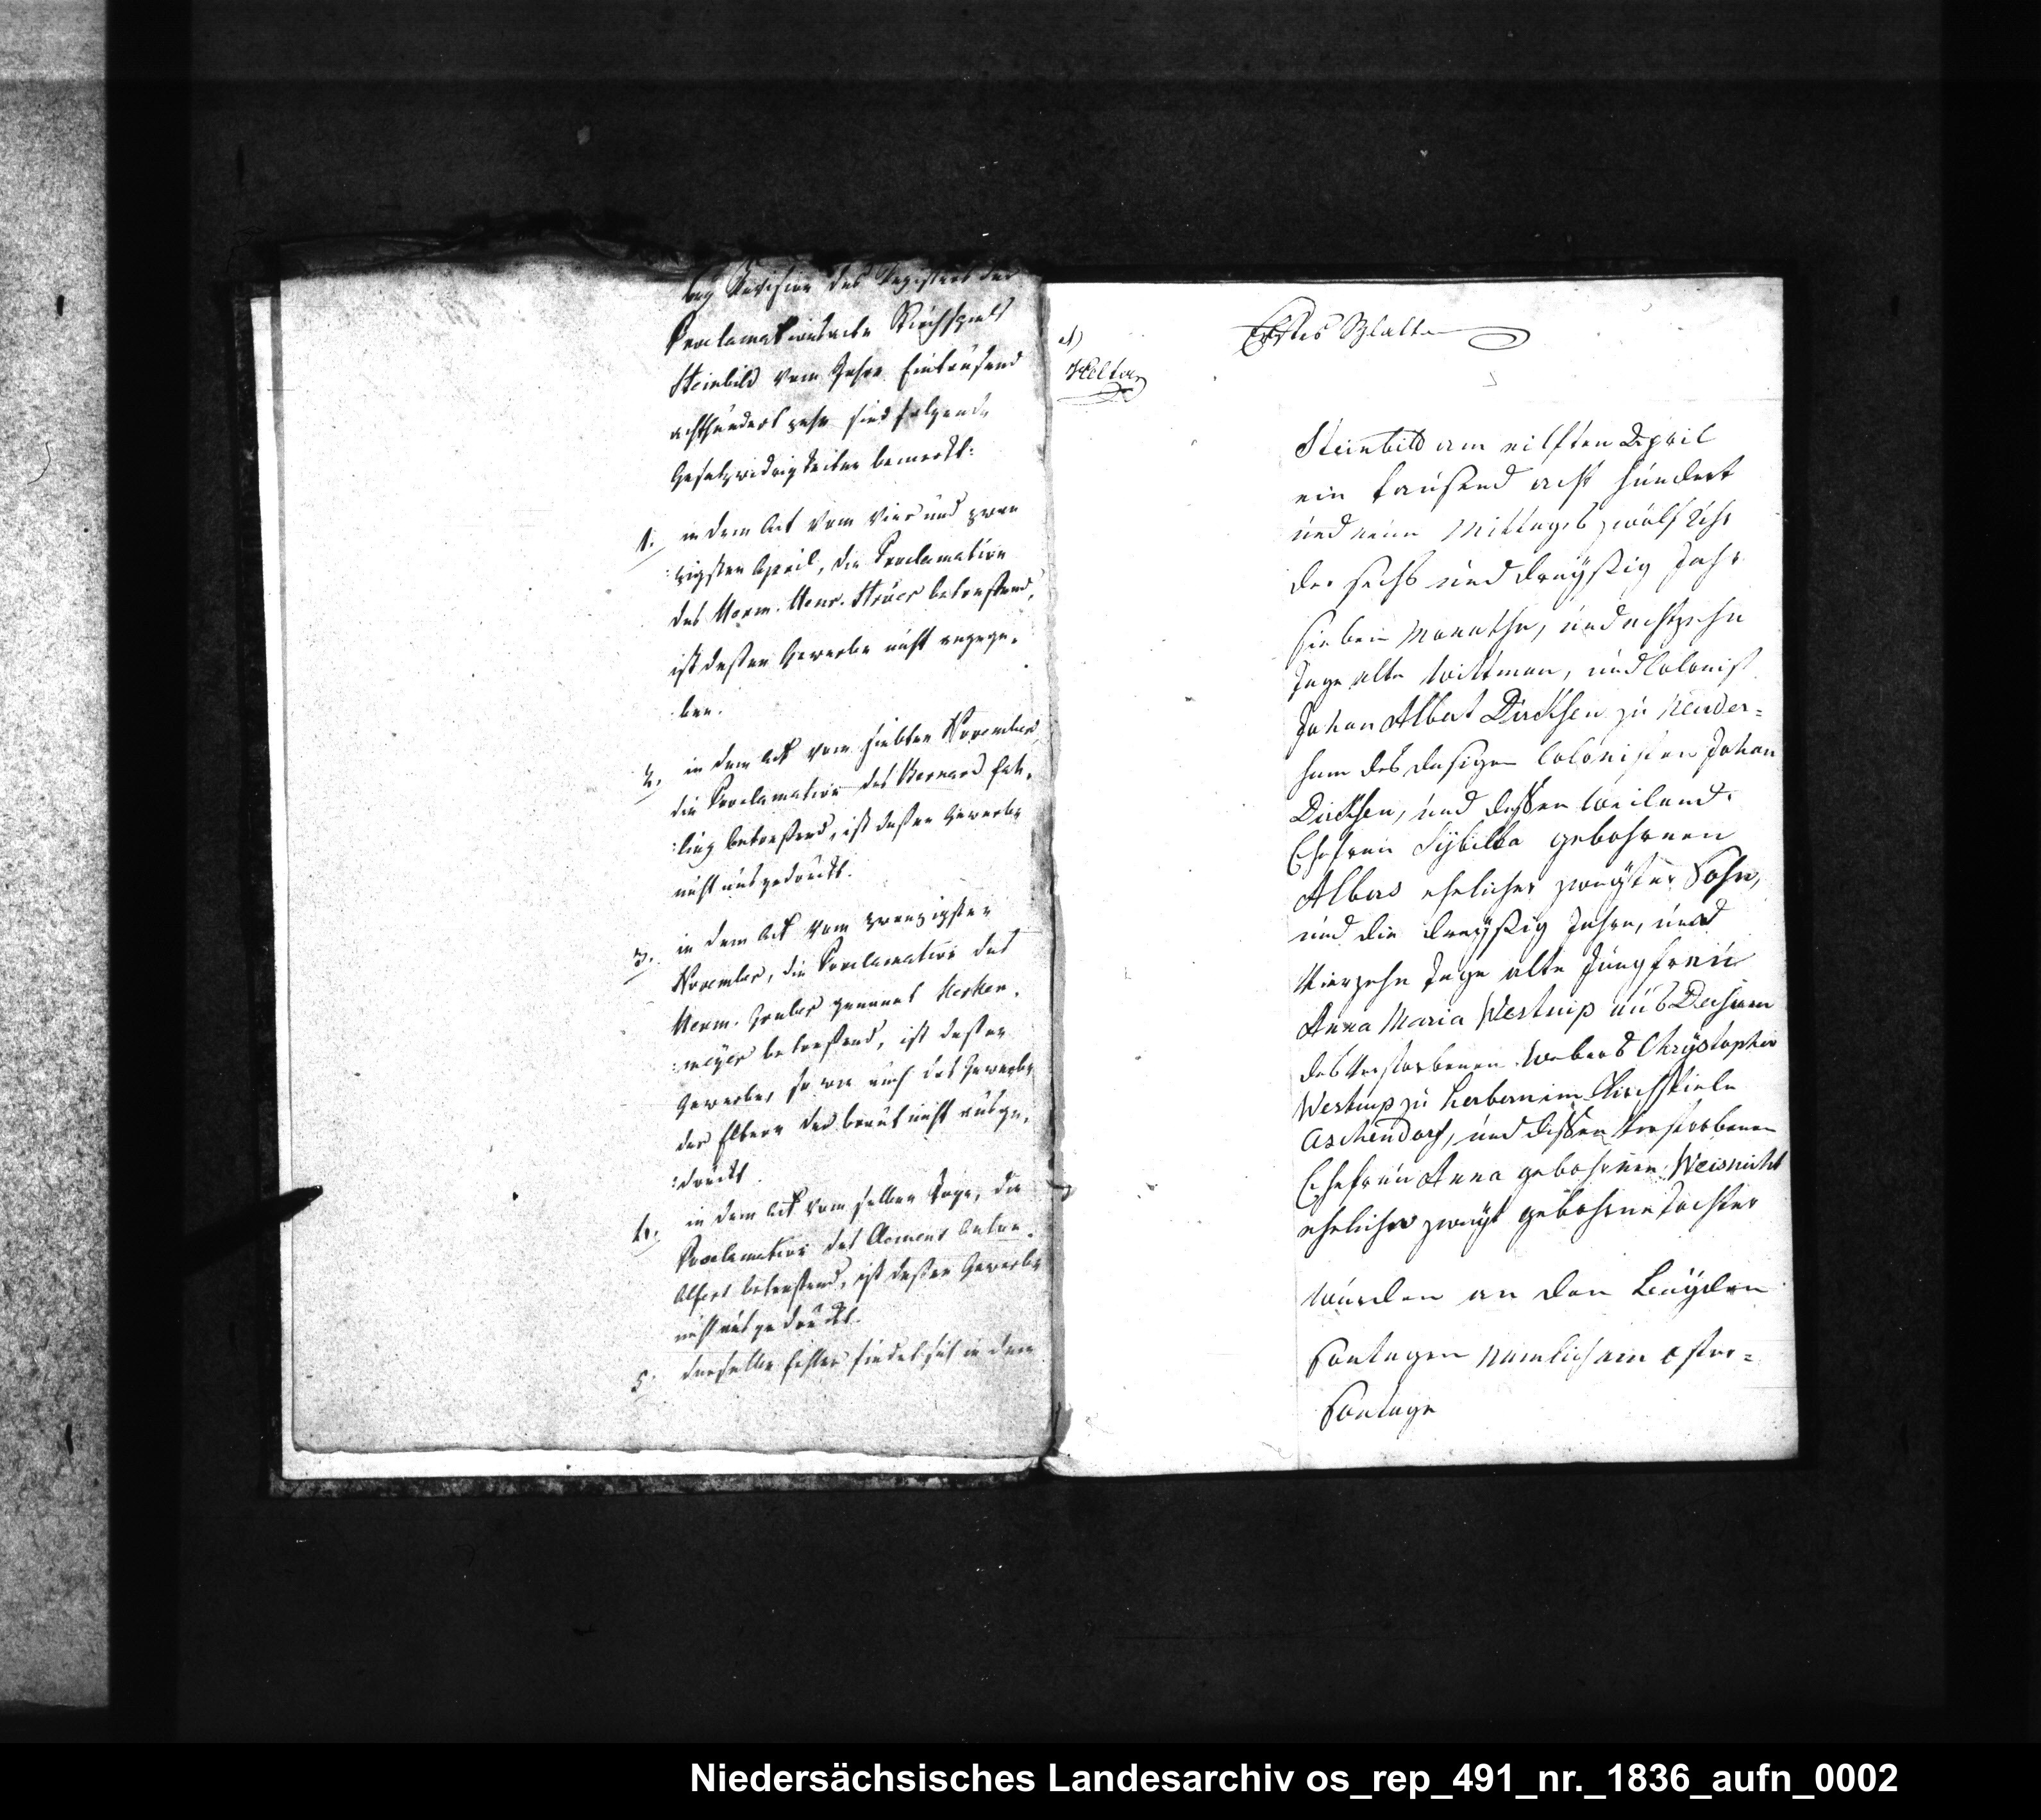 bey Revision des Registers der
Proclamationsacte Kirchspiels
Steinbild vom Jahre Eintausend
achthundert zehn sind folgende
Gesetzwidrigkeiten bemerkt:
1. in dem Act vom vier und zwan
:zigsten April, die Proclamation
des Herm. Henr. Strüer betreffend,
ist dessen Gewerbe nicht angege,
:ben.
2. in dem Act vom siebten November
die Proclamation des Bernard
:ling betreffend, ist dessen Gewerbe
nicht ausgedruckt.
3. in dem Act vom zwanzigsten
November, die Proclamation des
Herm. genannt
:meyer betreffend, ist dessen
Gewerbe, so wie auch das Gewerbe
der Eltern der braut nicht ausge,
:druckt
4. in dem Act vom selben Tage, die
Proclamation des Clemens Anton
betreffend, ist dessen Gewerbe
nicht ausgedruckt.
5. derselbe Fehler findet sich in dem
Erstes Blatt
Steinbild am eilften April
ein tausend acht hundert
und neun Mittags zwölf Uhr
der sechs und dreyßig Jahr
sieben Monathe, und achtzehn
Tage alte Wittman, und Colonist
Johan Albert Dircksen zu Neuder=
sum des dasigen Colonisten Johan
Dircksen, und dessen weiland
Ehefrau Sybilla gebohrnen
Albers ehelicher zweyter Sohn,
und die dreyßig Jahre, und
vierzehn Tage alte Jungfrau
Anna Maria Westrup aus
des verstorbenen Webers Chrystopher
Westrup zu Herbern im Kirchspiele
Aschendorf, und dessen verstorbenen
Ehefrau Anna gebohrnen
ehelicher zweyt gebohrne Tochter
wurden an den beyden
Sontagen nämlich am Oster=
Sontage
Niedersächsisches Landesarchiv os_rep_491_nr._1836_aufn_0002